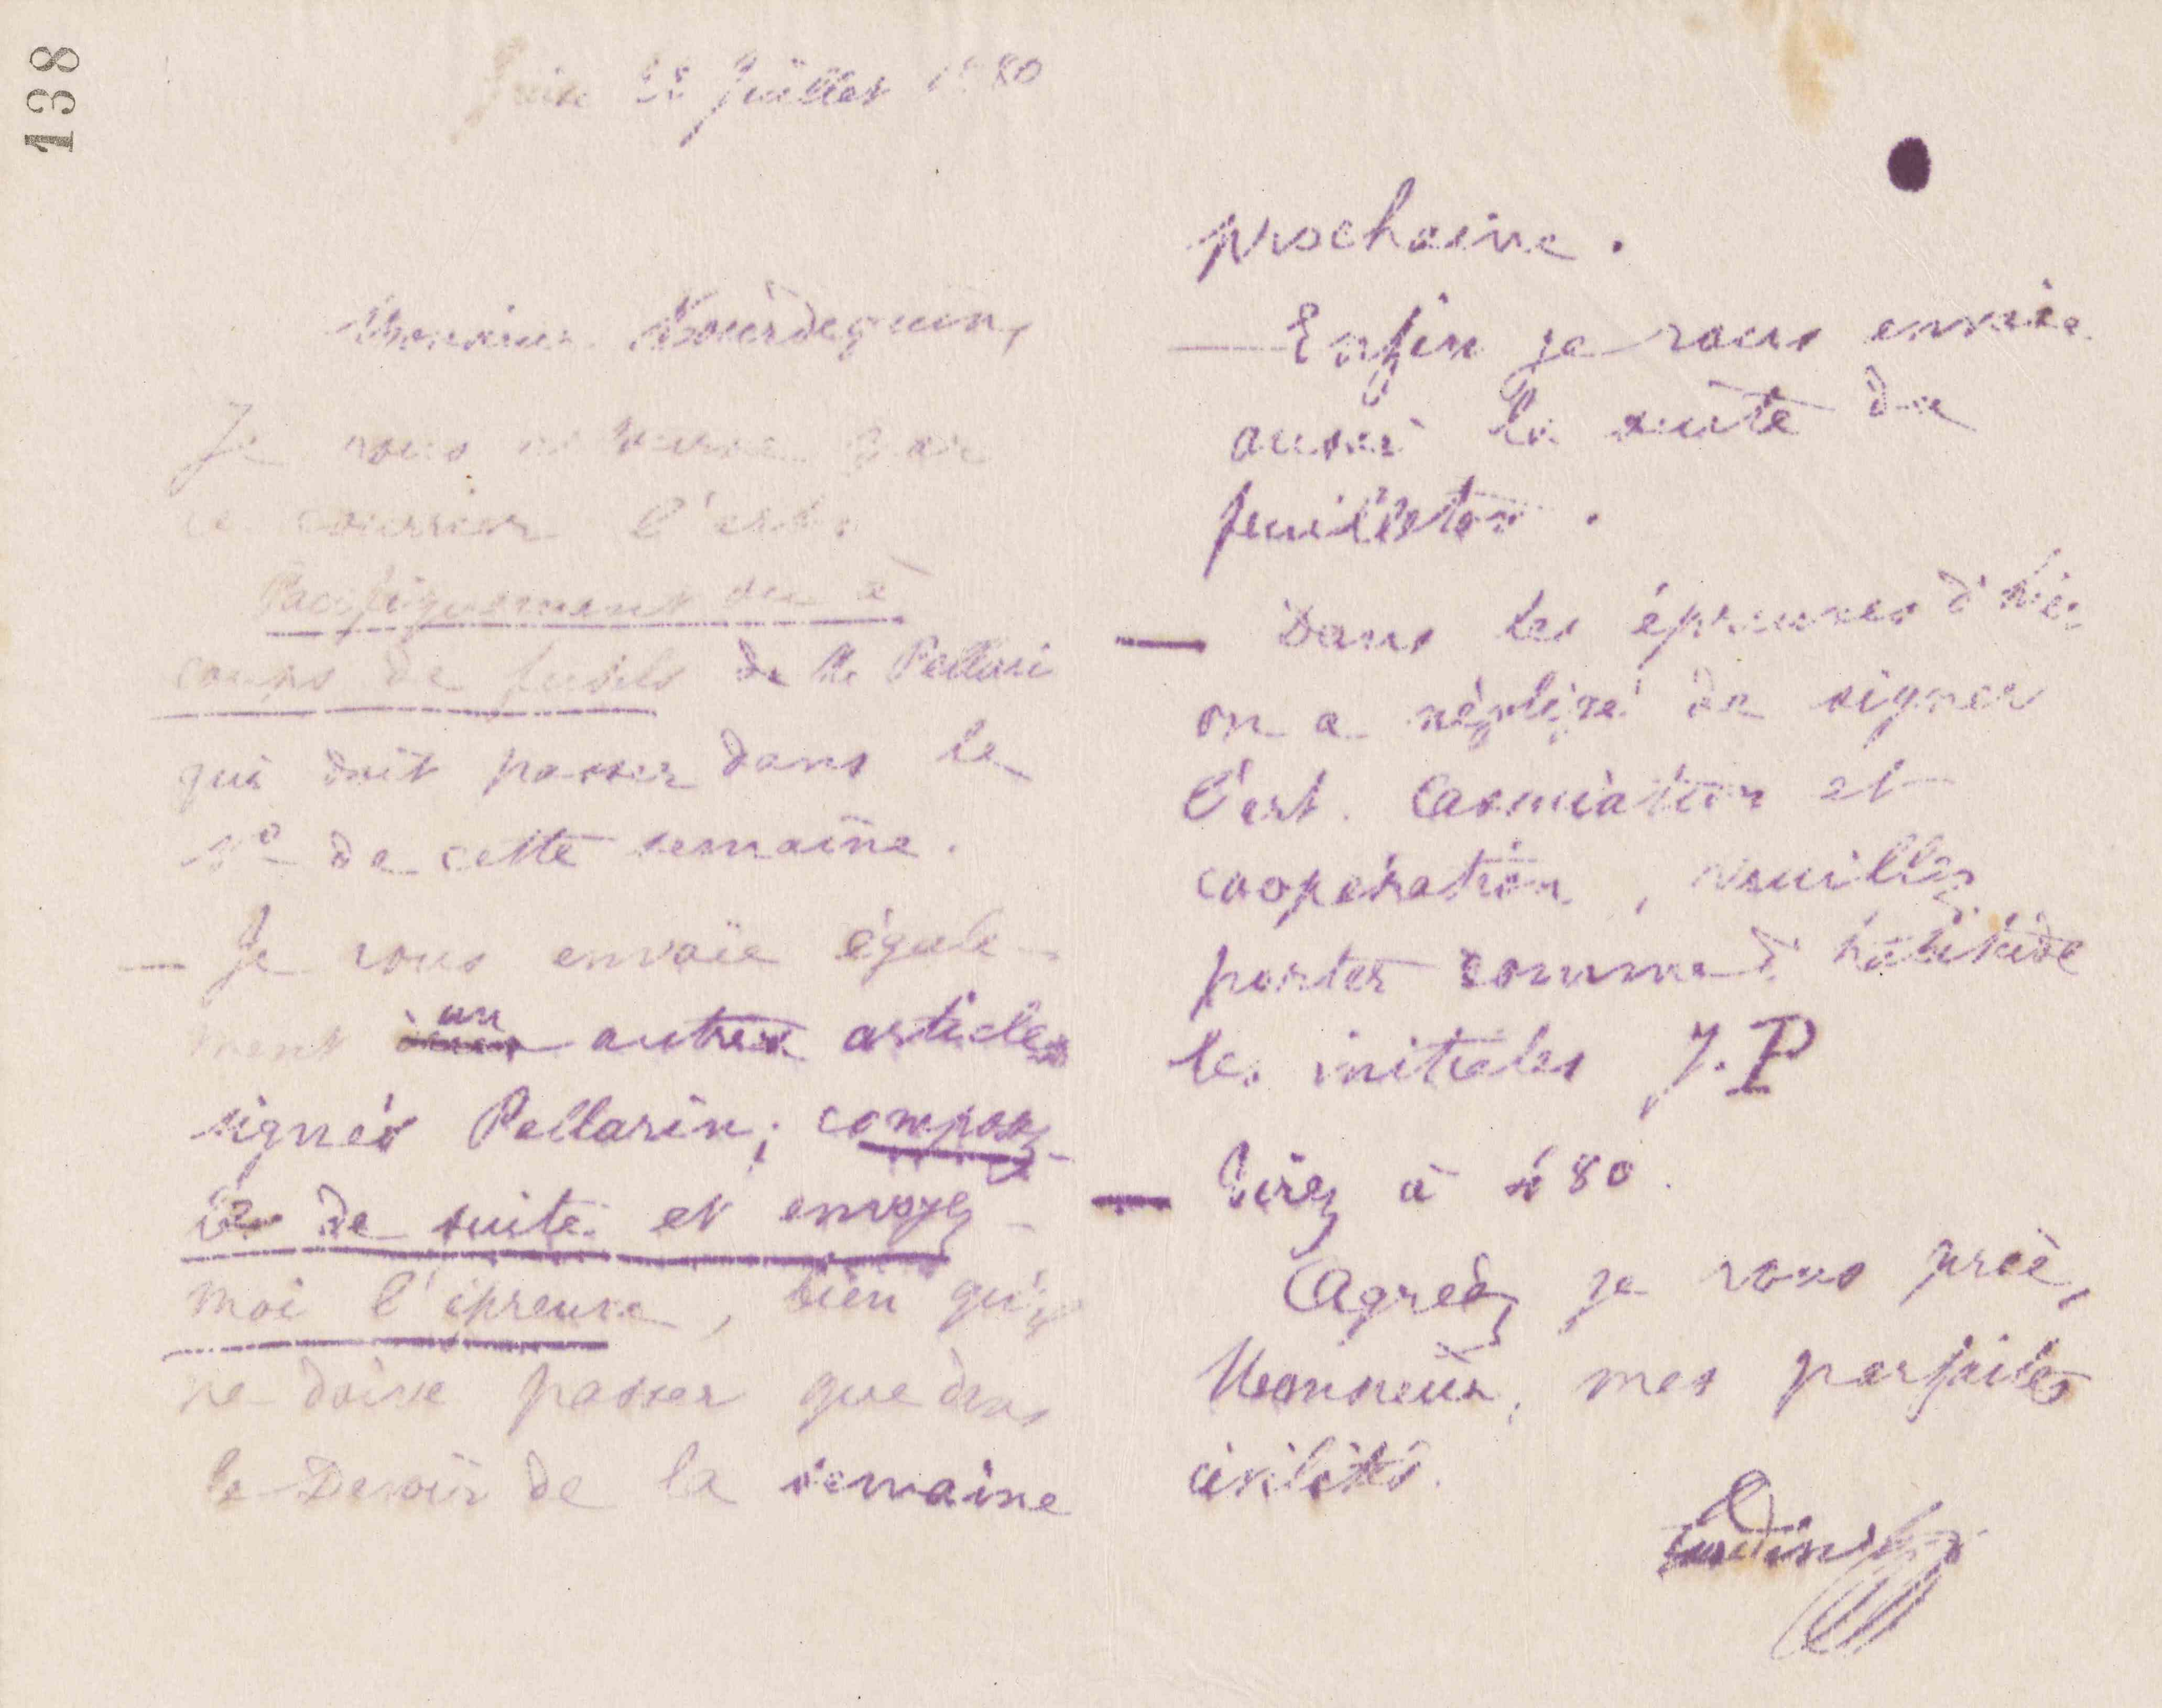 138
Guise 22 Juillet 1880
Monsieur Bourdequin,
Je vous retourne par
ce courrier l'art.
Pacifiquement ou à
coups de fusils de M. Pellari
qui doit passer dans le
N° de cette semaine.
— Je vous envoie égale-
ment un autre article
signés Pellarin; composez-
le de suite et envoyez-
moi l'épreuve, bien qu'il
ne doive passer que dans
le Devoir de la semaine
prochaine.
— Enfin je vous envoie
aussi la suite du
feuilleton.
— Dans les épreuves d'hier
on a négligé de signer
l'art. Association et
coopération, veuillez
porter comme d'habitude
les initiales J. P
— Tirez à 480.
Agréez je vous prie,
Monsieur, mes parfaites
civilités.
Godin